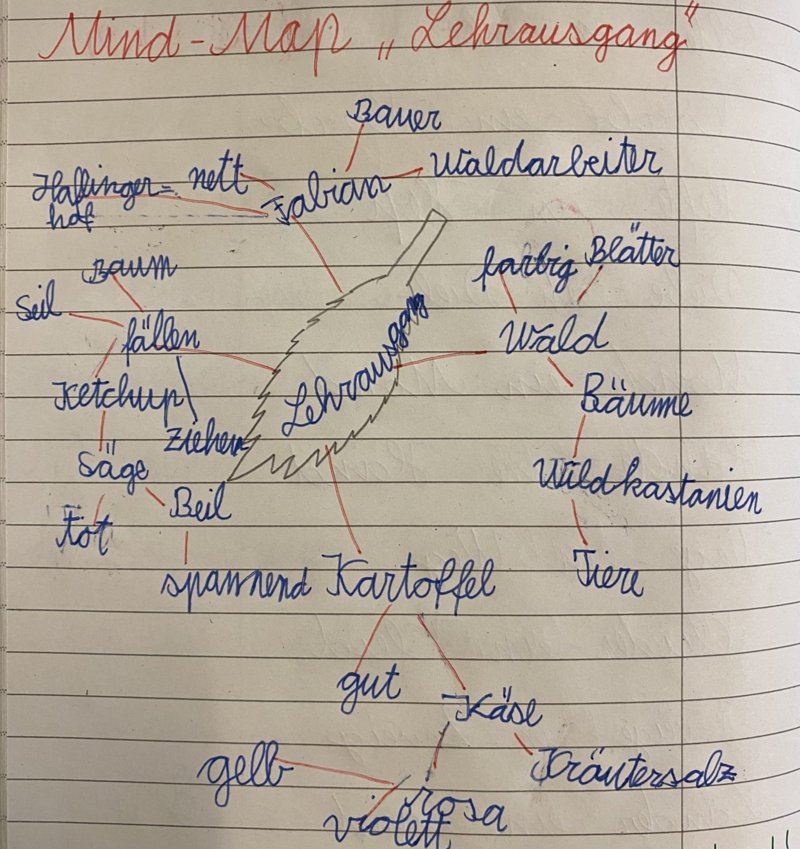 Mind-Map „Lehrausgang"
Bauer
Waldarbeiter
nett
Haflinger=
hof
Fabian
farbig
Blätter
Wald
Bäume
Wildkastanien
Tiere
Baum
Seil
fällen
Ketchup
ziehen
Säge
Beil
Tot
spannend
Lehrausgang
Kartoffel
gut
Käse
Kräutersalz
gelb
rosa
violett